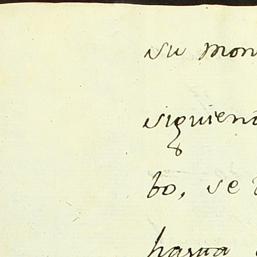 su mon
siguien
to, se
hasta